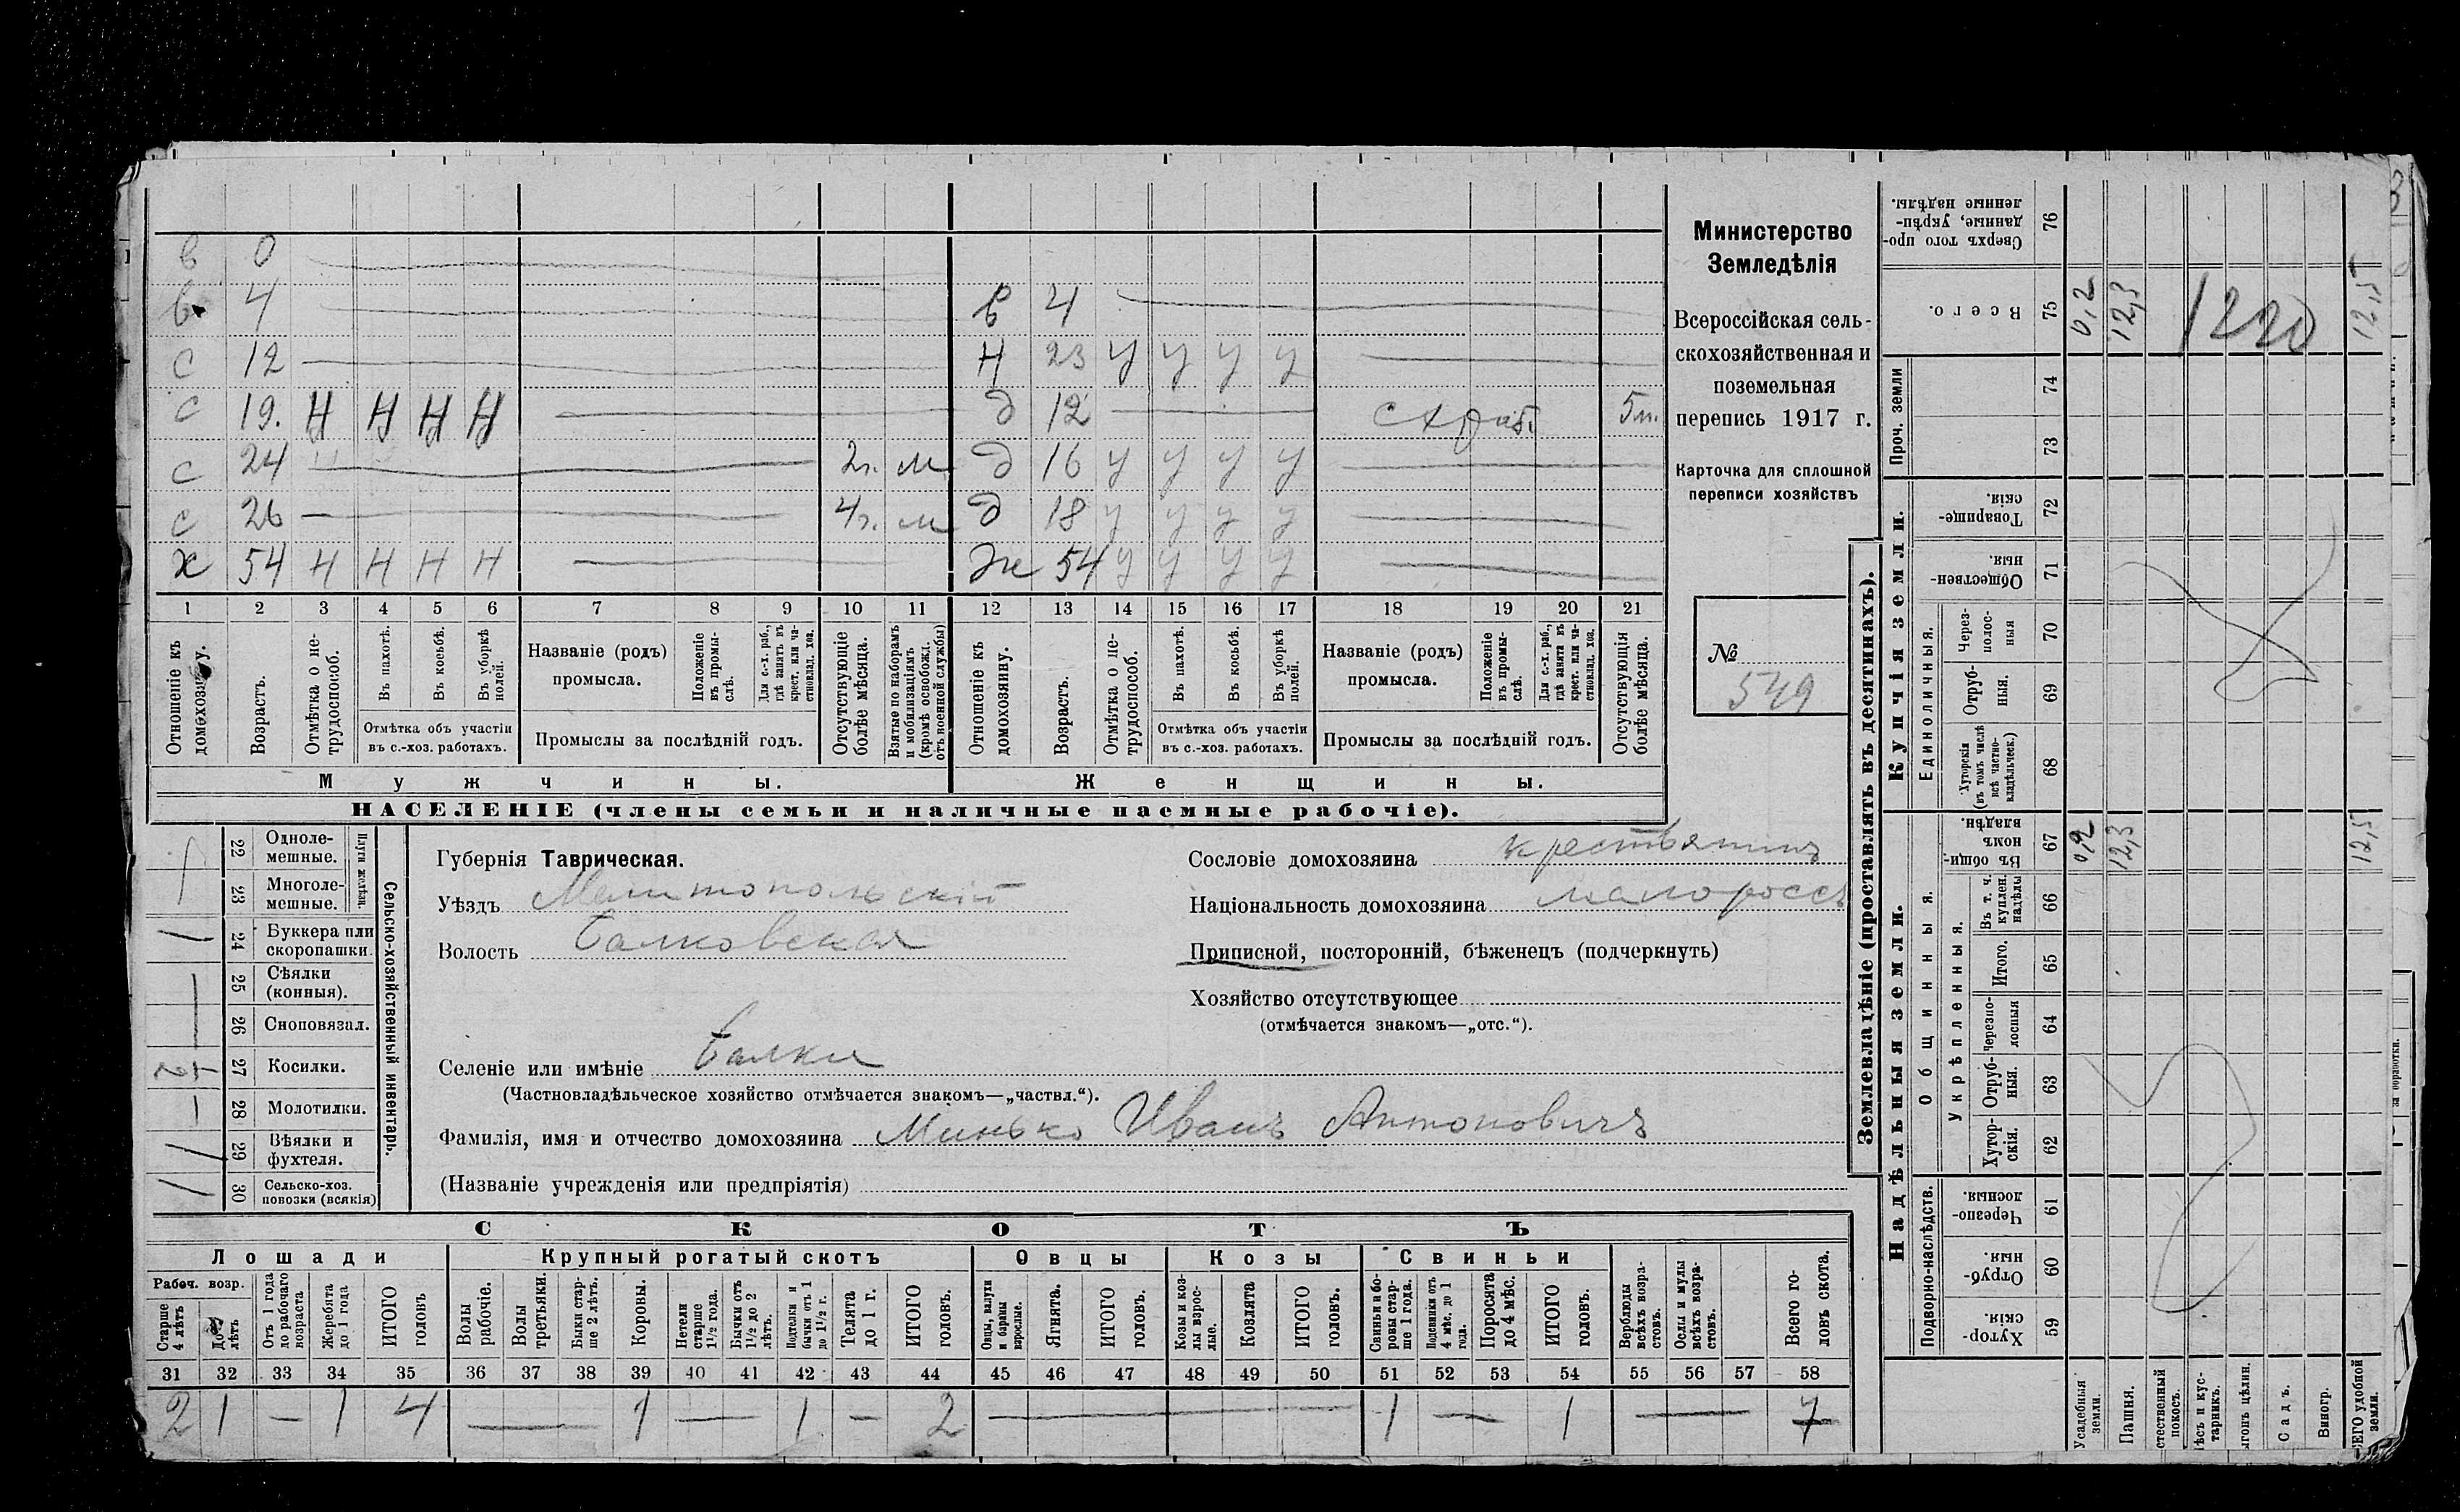 в 0
в 4 в 4
с 12 н 23 у у у у
с 19. Н Н Н Н д 12 схраб. 5м.
с 24 2г. м д 16 у у у у
с 26 4г. м д 18 у у у у
х 54 Н Н Н Н Ж 54 у у у у
1 2 3 4 5 6 7 8 9 10 11 12 13 14 15 16 17 18 19 20 21
Отношеніе къ домохозяину.
Возрастъ.
Отмѣтка о не-
трудоспособ.
Въ пахотѣ.
Въ косьбѣ.
Въ уборкѣ полей.
Отмѣтка объ участіи
въ с.-хоз. работахъ.
Названіе (родъ)
промысла.
Положеніе въ промы-
слѣ.
Для с.-х. раб., гдѣ занятъ въ крест. или ча-
стновлад. хоз.
Промыслы за послѣдній годъ.
Отсутствующіе болѣе мѣсяца.
Взятые по наборамъ и мобилизаціямъ (кромѣ освобожд. отъ военной службы)
Отношеніе къ домохозяину.
Возрастъ.
Отмѣтка о не-
трудоспособ.
Въ пахотѣ.
Въ косьбѣ.
Въ уборкѣ полей.
Отмѣтка объ участіи
въ с.-хоз. работахъ.
Названіе (родъ)
промысла.
Положеніе въ промы-
слѣ.
Для с.-х. раб., гдѣ занята въ крест. или ча-
стновлад. хоз.
Промыслы за послѣдній годъ.
Отсутствующія болѣе мѣсяца.
Мужчины. Женщины.
НАСЕЛЕНІЕ (члены семьи и наличные наемные рабочіе).
Министерство
Земледѣлія
Всероссійская сель-
скохозяйственная и
поземельная
перепись 1917 г.
Карточка для сплошной
переписи хозяйствъ
№
549
22 Одноле-
мешные.
23 Многоле-
мешные.
Плуги желѣзн.
1 24 Буккера или
скоропашки.
25 Сѣялки
(конныя).
26 Сноповязал.
27 Косилки.
28 Молотилки.
1 29 Вѣялки и
фухтеля.
1 30 Сельско-хоз.
повозки (всякія)
Сельско-хозяйственный инвентарь.
Губернія Таврическая.
Уѣздъ Мелитопольскій
Волость Балковская
Селеніе или имѣніе Балки
(Частновладѣльческое хозяйство отмѣчается знакомъ—„частвл.“).
Фамилія, имя и отчество домохозяина Минько Иванъ Антоновичъ
(Названіе учрежденія или предпріятія)
Сословіе домохозяина крестьянинъ
Національность домохозяина малороссъ
Приписной, посторонній, бѣженецъ (подчеркнуть)
Хозяйство отсутствующее
(отмѣчается знакомъ—„отс.“).
СКОТЪ
Лошади Крупный рогатый скотъ Овцы Козы Свиньи
Рабоч. возр.
Старше 4 лѣтъ
До лѣтъ
Отъ 1 года до рабочаго возраста
Жеребята до 1 года
ИТОГО головъ
Волы рабочіе.
Волы третьяки.
Быки стар-
ше 2 лѣтъ.
Коровы.
Нетели старше 1½ года.
Бычки отъ 1½ до 2 лѣтъ.
Подтелки и бычки отъ 1 до 1½ г.
Телята до 1 г.
ИТОГО головъ.
Овцы, валухи и бараны взрослые.
Ягнята.
ИТОГО головъ.
Козы и коз-
лы взрос-
лые.
Козлята
ИТОГО головъ.
Свиньи и бо-
ровы стар-
ше 1 года.
Подсвинки отъ 4 мѣс. до 1 года.
Поросята до 4 мѣс.
ИТОГО головъ.
Верблюды всѣхъ возра-
стовъ.
Ослы и мулы всѣхъ возра-
стовъ.
Всего го-
ловъ скота.
31 32 33 34 35 36 37 38 39 40 41 42 43 44 45 46 47 48 49 50 51 52 53 54 55 56 57 58
2 1 — 1 4 — 1 — 1 — 2 — 1 — 1 — 7
Землевладѣніе (проставлять въ десятинахъ).
Надѣльныя земли. Купчія земли.
Подворно-наслѣдств.
Общинныя.
Укрѣпленныя.
Единоличныя.
Проч. земли
Хутор-
скія. 59
Отруб-
ныя. 60
Черезпо-
лосныя. 61
Хутор-
скія. 62
Отруб-
ныя. 63
Черезпо-
лосныя 64
Итого. 65
Въ т. ч. куплен. надѣлы 66
Въ общин-
номъ владѣн. 67
Хуторскія (въ томъ числѣ всѣ частно-
владѣльческ.) 68
Отруб-
ныя. 69
Через-
полос-
ныя 70
Обществен-
ныя. 71
Товарище-
скія. 72
73
74
Всего. 75
Сверхъ того про-
данные, укрѣп-
ленные надѣлы. 76
Усадебныя земли. 0,2 0,2
Пашня. 12,3 12,3
стественный покосъ.
ѣсъ и кус-
тарникъ.
ыгонъ цѣлин.
Садъ.
Виногр.
ЕГО удобной земли. 12,5 12,5
1220